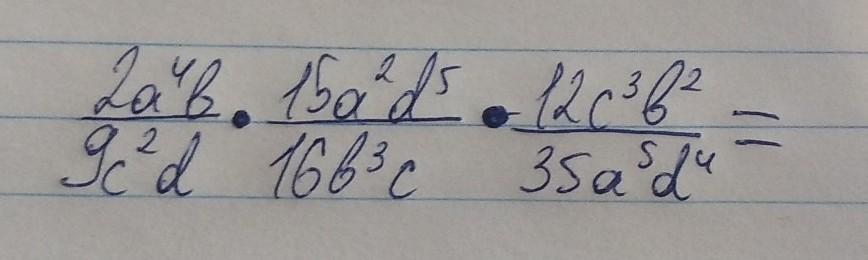 2a⁴b/9c²d • 15a²d⁵/16b³c • 12c³b²/35a⁵d⁴ =